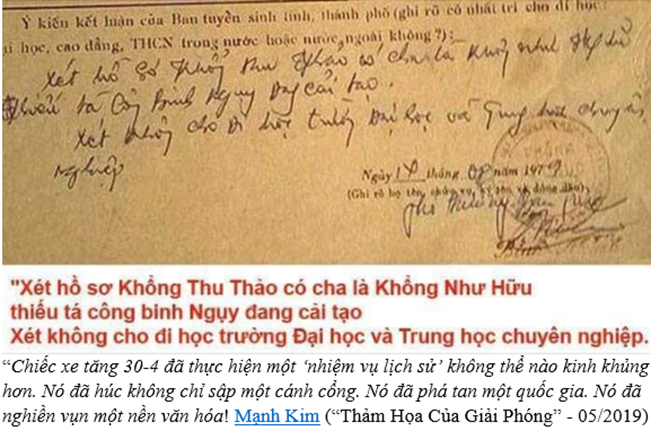 Ý kiến kết luận của Ban tuyển sinh tỉnh, thành phố (ghi rõ có nhất trí cho đi học
đại học, cao đẳng, THCN trong nước hoặc nước ngoài không ?):
Xét hồ sơ Khổng Thu Thảo có cha là Khổng Như Hữu
thiếu tá Công Binh Ngụy đang cải tạo.
Xét không cho đi học trường Đại học và Trung học chuyên
nghiệp
Ngày 14 tháng 08 năm 1979
(Ghi rõ họ tên, chức vụ, ký tên và đóng dấu)
"Xét hồ sơ Khổng Thu Thảo có cha là Khổng Như Hữu
thiếu tá công binh Ngụy đang cải tạo
Xét không cho đi học trường Đại học và Trung học chuyên nghiệp.
“Chiếc xe tăng 30-4 đã thực hiện một ‘nhiệm vụ lịch sử’ không thể nào kinh khủng
hơn. Nó đã húc không chỉ sập một cánh cổng. Nó đã phá tan một quốc gia. Nó đã
nghiền vụn một nền văn hóa! Mạnh Kim (“Thảm Họa Của Giải Phóng” - 05/2019)